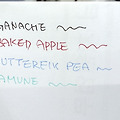 GANACHE
BAKED APPLE
BUTTERFLY PEA
RAMUNE